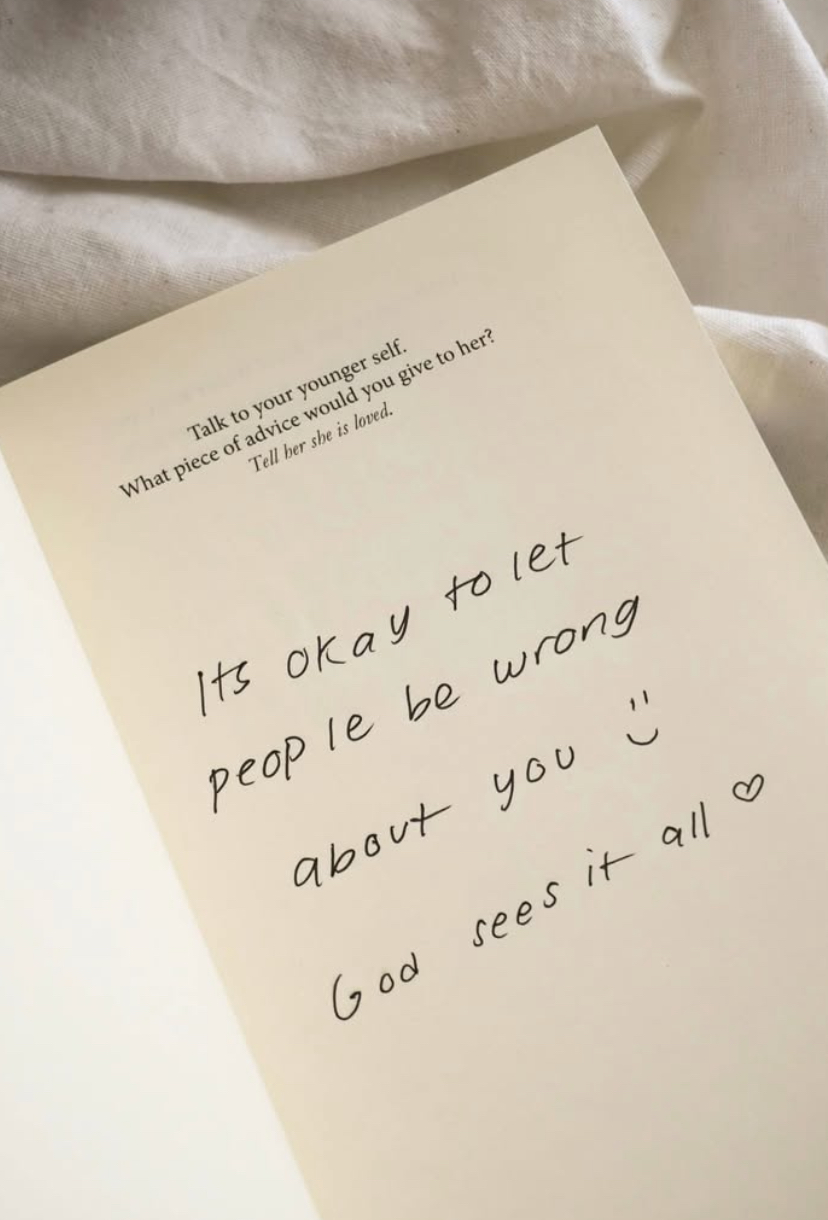 Talk to your younger self.
What piece of advice would you give to her?
Tell her she is loved.
Its okay to let
people be wrong
about you
God sees it all